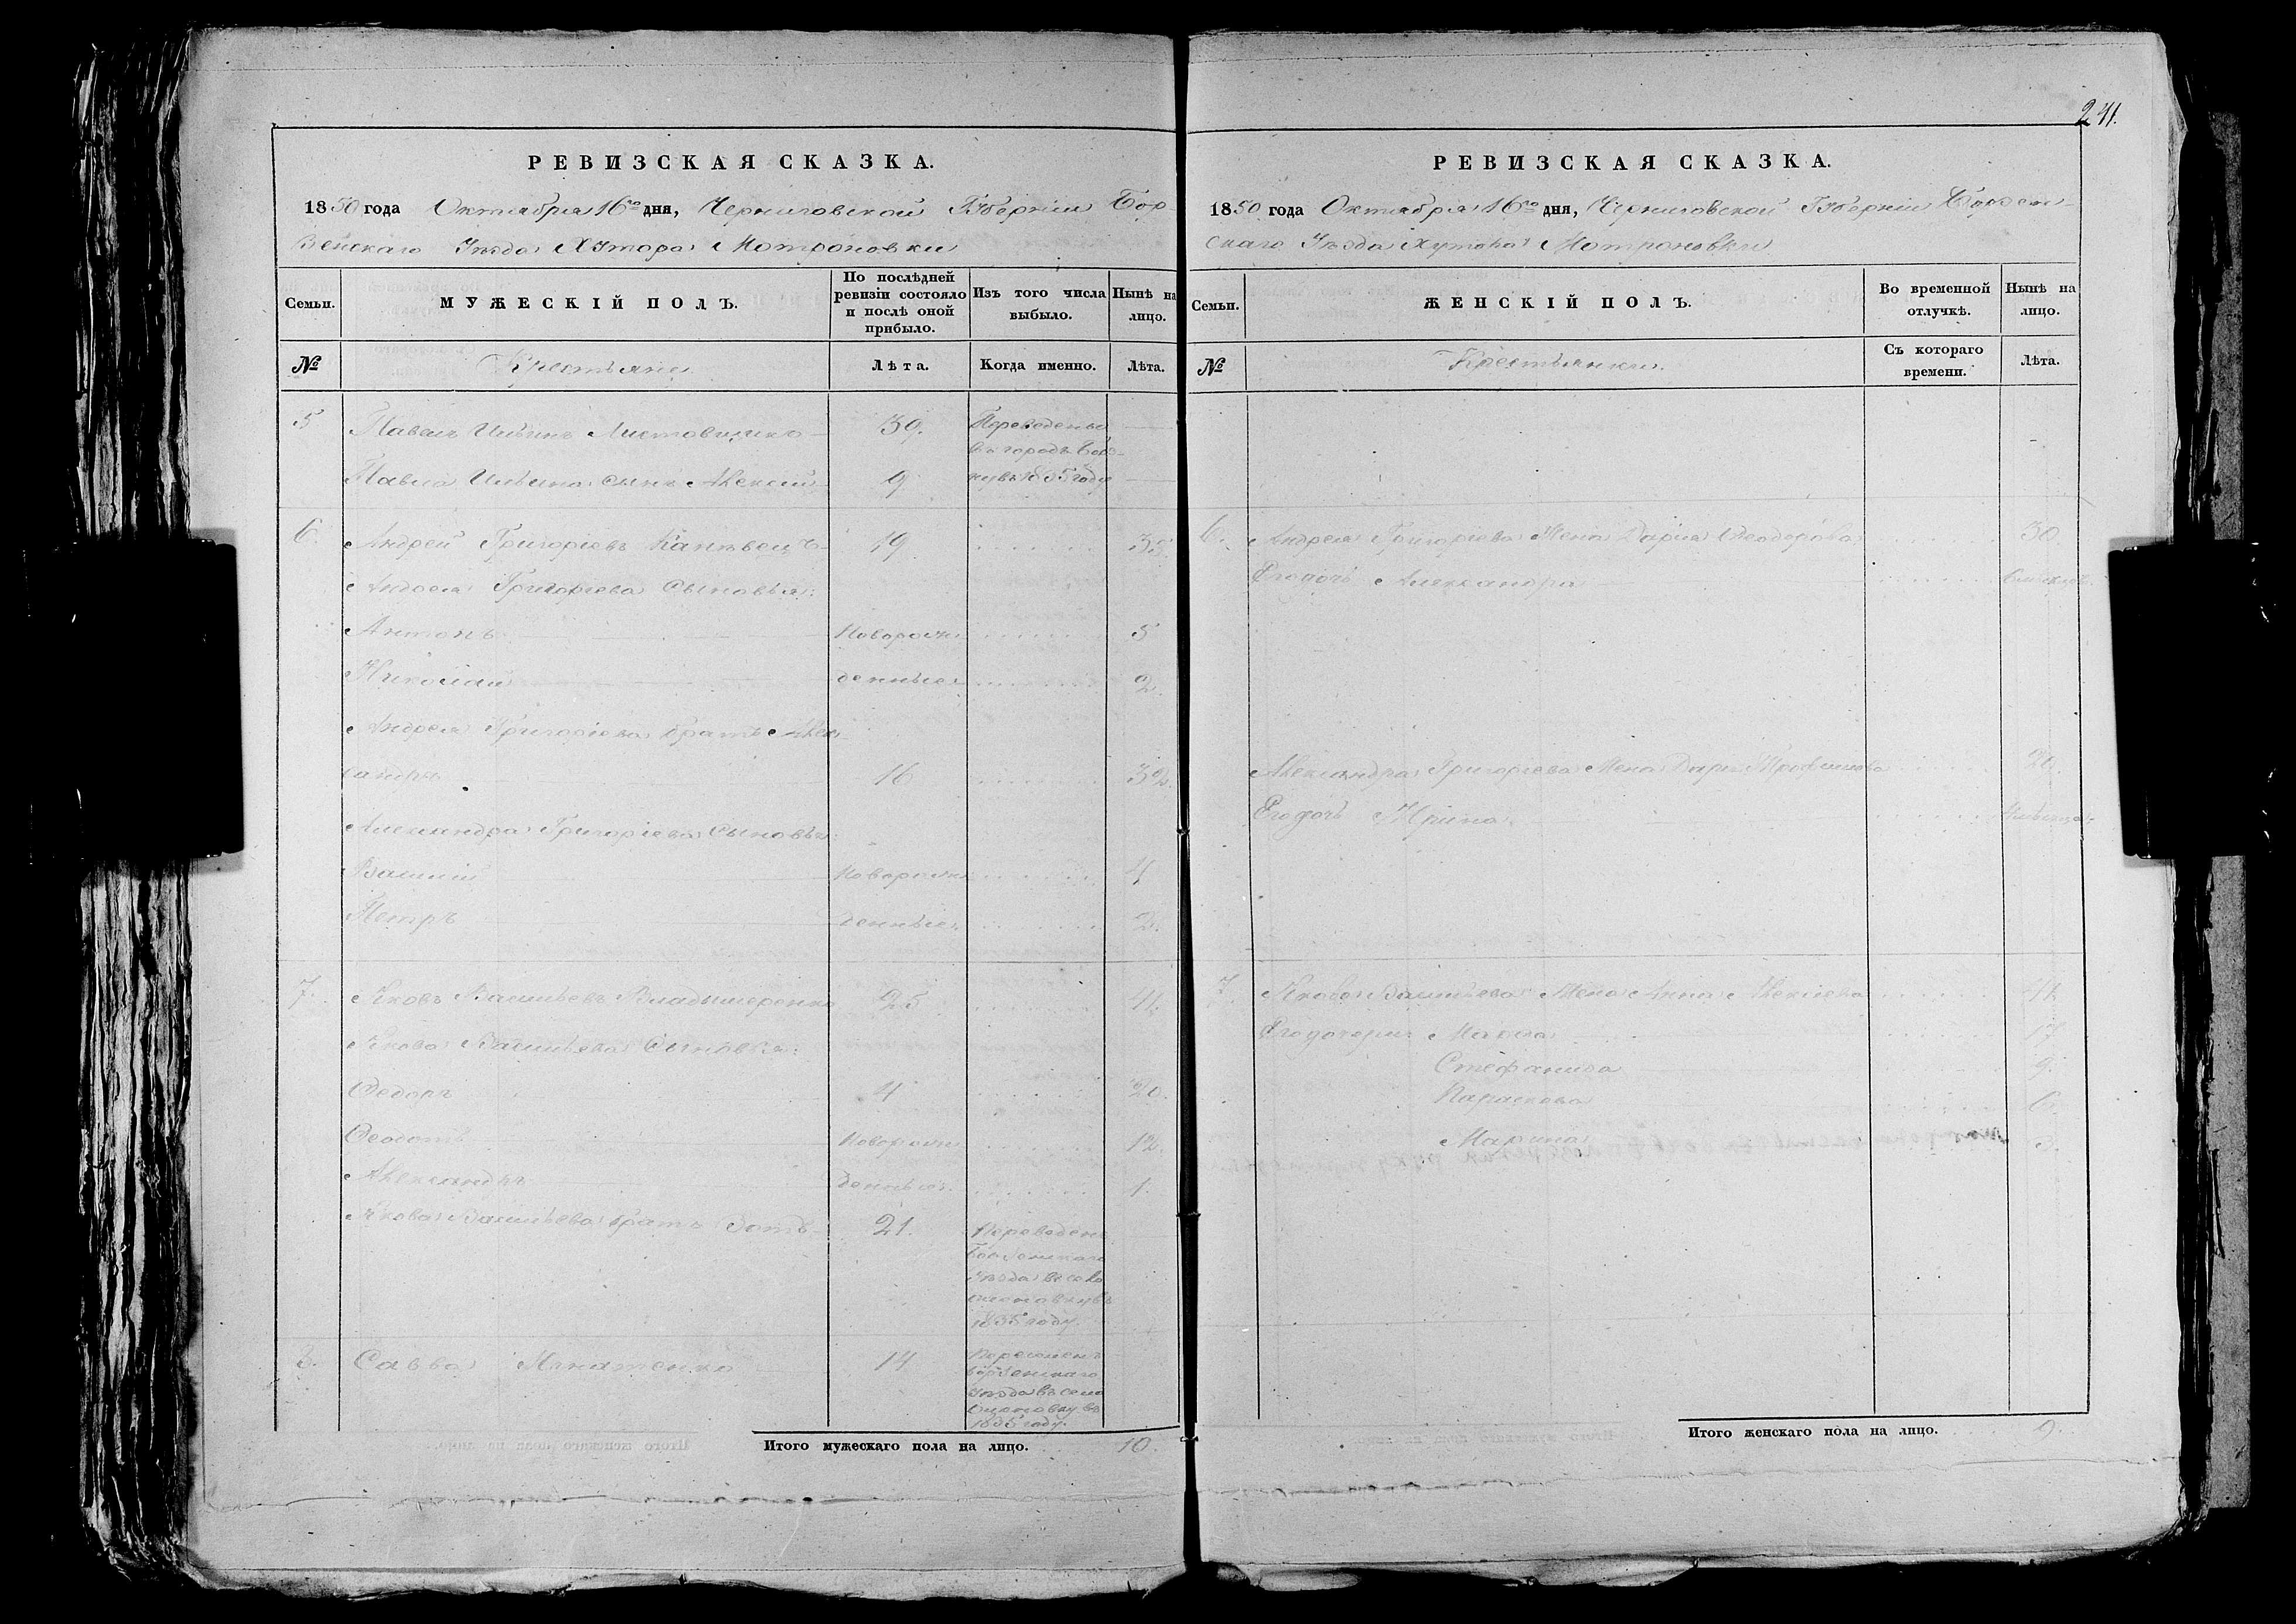 241.
РЕВИЗСКАЯ СКАЗКА.
1850 года Октября 16го дня, Черниговской Губерніи Бор-
зенскаго Уезда Хутора Мотроновки
Семьи.
МУЖЕСКІЙ ПОЛЪ.
По послѣдней
ревизіи состояло
и послѣ оной
прибыло.
Изъ того числа
выбыло.
Нынѣ на
лицо.
№
Крестьяне
Лѣта.
Когда именно.
Лѣта.
5
Павелъ Ильинъ
39.
Переведены
въ городъ Борз-
ну въ 1835 году
Павла Ильина сынъ Алексѣй
9
6.
Андрей Григоріевъ
19.
35.
Андрея Григорьева Сыновья:
Антонъ
Новорож-
5
Николай
денные
2.
Андрея Григоріева братъ Алек-
сандръ
16
32.
Александра Григоріева Сыновья:
Василій
Новорож-
4
Петръ
денные.
2.
7.
Яковъ Васильевъ Владимеренко
25
41.
Якова Васильева Сыновья:
Федоръ
4
20.
Феодотъ
Новорож-
12.
Александръ
денные.
1.
Якова Васильева братъ
21.
Переведенъ
Борзенскаго
Уезда въ село
1835 году.
8.
Савва Игнатенко
14
Борзенскаго
уезда въ село
въ
1835 году.
Итого мужескаго пола на лицо.
10.
РЕВИЗСКАЯ СКАЗКА.
1850 года Октября 16го дня, Черниговской Губерніи Борзен-
скаго Уезда Хутора Мотроновки
Семьи.
ЖЕНСКІЙ ПОЛЪ.
Во временной
отлучкѣ.
Нынѣ на
лицо.
№
Крестьянки.
Съ котораго
времени.
Лѣта.
6.
Андрея Григоріева Жена Дарья Феодорова
30.
Его дочь Александра
Александра Григорьева Жена
26.
Его дочь Ирина
7.
Якова Васильева Жена Анна Алексіева
41.
Его дочери: Марья
17
Стефанида
9.
Параскева
6.
Марина
3.
Итого женскаго пола на лицо.
9.